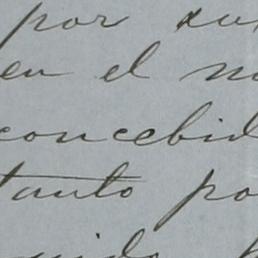 por
en el
concebid
tanto po